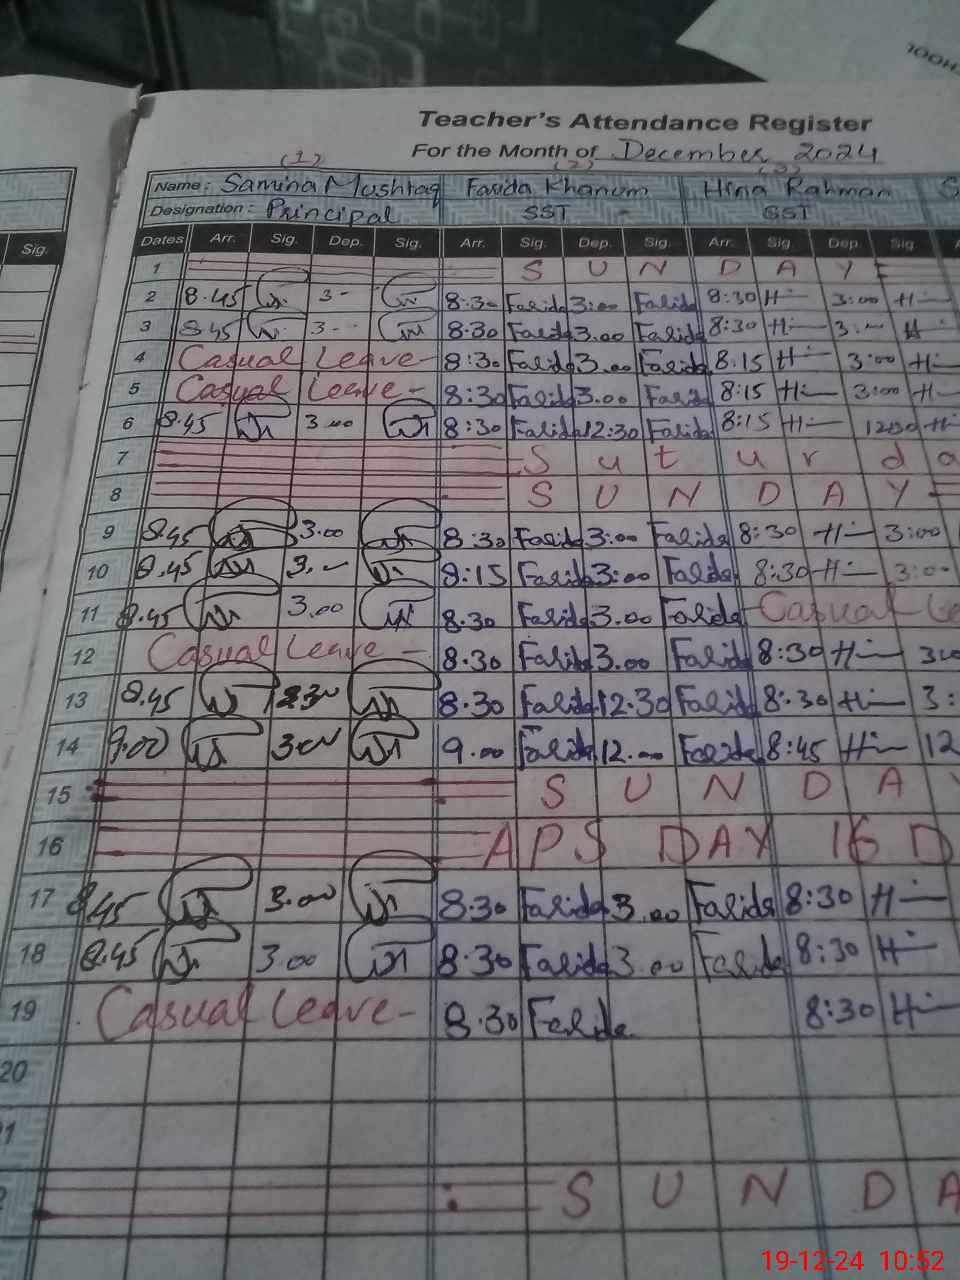 HOOL
Teacher's Attendance Register
For the Month of December 2024
(1) (2) (3)
Name: Samina Mushtaq Farida Khanum Hina Rahman S
Designation: Principal SST - SST
Sig. Dates Arr. Sig. Dep. Sig. Arr. Sig. Dep. Sig. Arr. Sig. Dep Sig. A
1 S U N D A Y
2 8.45 3- 8:30 Farida 3:00 Farida 8:30 H 3:00 H
3 8.45 3-- 8:30 Farida 3.00 Farida 8:30 H 3: H
4 Casual Leave - 8:30 Farida 3.00 Farida 8:15 H 3:00 H
5 Casual Leave - 8:30 Farida 3.00 Farida 8:15 H 3:00 H
6 8.45 3.00 8:30 Farida 12:30 Farida 8:15 H 1230 H
7 S u t u r d a
8 S U N D A Y
9 8.45 3.00 8:30 Farida 3:00 Farida 8:30 H 3:00
10 8.45 3.- 8:15 Farida 3:00 Farida 8:30 H 3:00
11 8.45 3.00 8.30 Farida 3.00 Farida Casual Le
12 Casual Leave - 8.30 Farida 3.00 Farida 8:30 H 3:0
13 8.45 8.30 Farida 12.30 Farida 8:30 H 3:
14 9.00 3.00 9.00 Farida 12.00 Farida 8:45 H 12
15 S U N D A Y
16 APS DAY 16 D
17 8.45 3.00 8.30 Farida 3.00 Farida 8:30 H
18 8.45 3.00 8.30 Farida 3.00 Farida 8:30 H
19 Casual Leave - 8.30 Farida 8:30 H
20
1
2 S U N D A
19-12-24 10:52